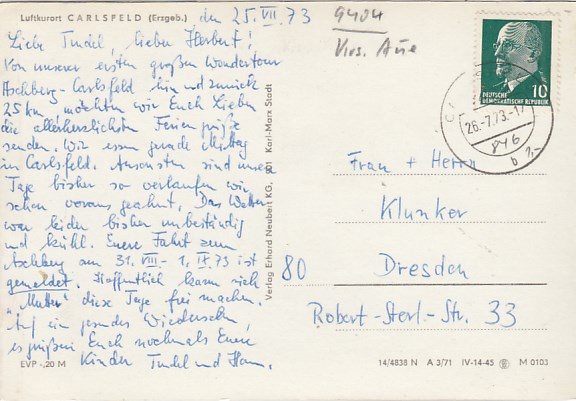 Luftkurort CARLSFELD (Erzgeb.)
den 25. VII. 73
9404
Krs. Aue
Liebe Trudel, lieber Herbert!
Von unserer ersten großen Wandertour
Aschberg - Carlsfeld hin und zurück
25 km möchten wir Euch Lieben
die allerherzlichsten Feriengrüße
senden. Wir essen gerade Mittag
in Carlsfeld. Ansonsten sind unsere
Tage bisher so verlaufen wie
schon voraus geahnt. Das Wetter
war leider bisher unbeständig
und kühl. Eure Fahrt zum
Aschberg am 31. VIII. - 1. IX. 73 ist
gemeldet. Hoffentlich kann sich
"Mutter" diese Tage frei machen.
Auf ein gesundes Wiedersehen,
es grüßen Euch nochmals Eure
Kinder Trudel und Hann.
EVP -,20 M
Verlag Erhard Neubert KG, 901 Karl-Marx-Stadt
10
DEUTSCHE
DEMOKRATISCHE REPUBLIK
26.-7.73.-1
Frau + Herrn
Klunker
80 Dresden
Robert-Sterl-Str. 33
14/4838 N A 3/71 IV-14-45 M 0103